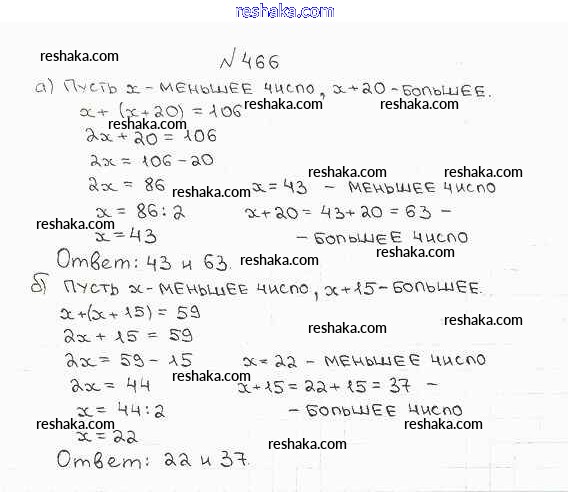 www.reshaka.com
reshaka.com
№466
а) Пусть x - меньшее число, x+20 - большее.
x + (x+20) = 106 reshaka.com reshaka.com
reshaka.com
2x + 20 = 106
2x = 106 - 20
reshaka.com reshaka.com
2x = 86 reshaka.com x = 43 - меньшее число
x = 86 : 2 x+20 = 43+20 = 63 -
reshaka.com reshaka.com
x = 43 - большее число
Ответ: 43 и 63. reshaka.com reshaka.com
б) Пусть x - меньшее число, x+15 - большее.
reshaka.com
x+(x+15) = 59
2x + 15 = 59 reshaka.com reshaka.com
2x = 59 - 15 x = 22 - меньшее число
2x = 44 reshaka.com x+15 = 22+15 = 37 -
reshaka.com reshaka.com
x = 44 : 2 - большее число
x = 22 reshaka.com reshaka.com
Ответ: 22 и 37.
reshaka.com